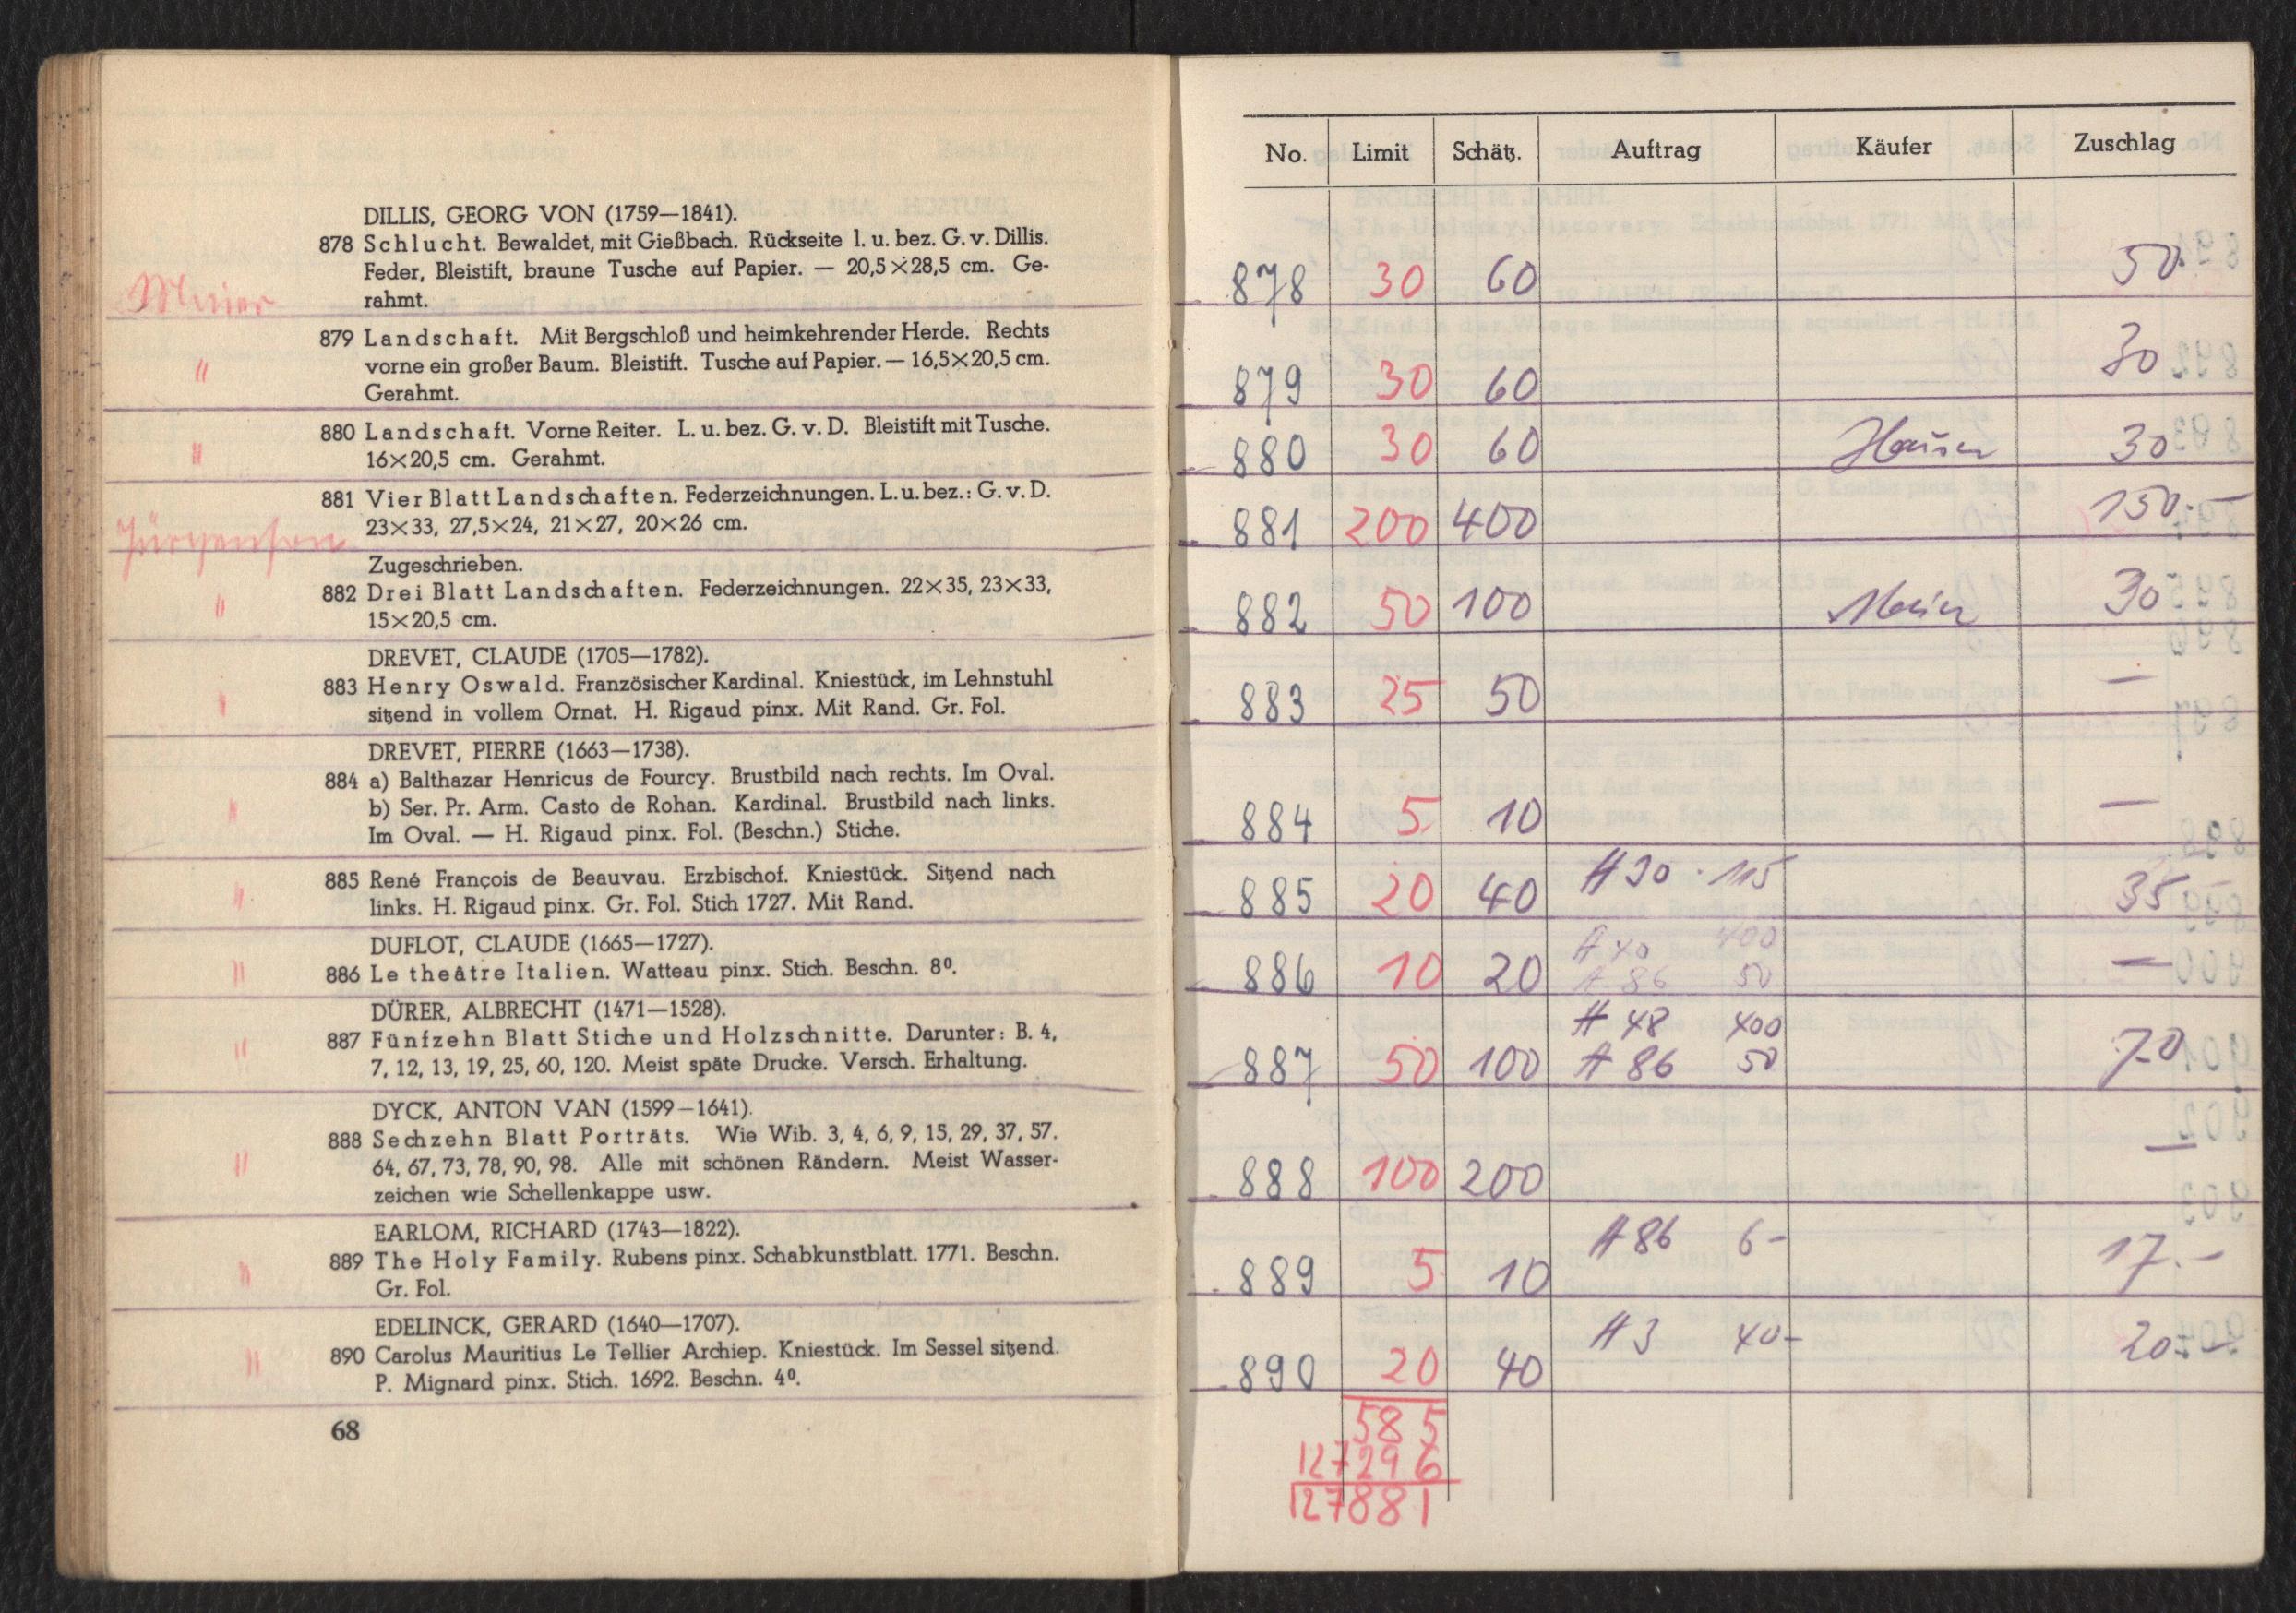 DILLIS, GEORG VON (1759—1841).
878 Schlucht. Bewaldet, mit Gießbach. Rückseite l. u. bez. G. v. Dillis.
Feder, Bleistift, braune Tusche auf Papier. — 20,5×28,5 cm. Ge-
rahmt.
Meier
879 Landschaft. Mit Bergschloß und heimkehrender Herde. Rechts
vorne ein großer Baum. Bleistift. Tusche auf Papier. — 16,5×20,5 cm.
Gerahmt.
"
880 Landschaft. Vorne Reiter. L. u. bez. G. v. D. Bleistift mit Tusche.
16×20,5 cm. Gerahmt.
"
881 Vier Blatt Landschaften. Federzeichnungen. L. u. bez.: G. v. D.
23×33, 27,5×24, 21×27, 20×26 cm.
Jürgenson
Zugeschrieben.
882 Drei Blatt Landschaften. Federzeichnungen. 22×35, 23×33,
15×20,5 cm.
"
DREVET, CLAUDE (1705—1782).
883 Henry Oswald. Französischer Kardinal. Kniestück, im Lehnstuhl
sitzend in vollem Ornat. H. Rigaud pinx. Mit Rand. Gr. Fol.
"
DREVET, PIERRE (1663—1738).
884 a) Balthazar Henricus de Fourcy. Brustbild nach rechts. Im Oval.
b) Ser. Pr. Arm. Casto de Rohan. Kardinal. Brustbild nach links.
Im Oval. — H. Rigaud pinx. Fol. (Beschn.) Stiche.
"
885 René François de Beauvau. Erzbischof. Kniestück. Sitzend nach
links. H. Rigaud pinx. Gr. Fol. Stich 1727. Mit Rand.
"
DUFLOT, CLAUDE (1665—1727).
886 Le theâtre Italien. Watteau pinx. Stich. Beschn. 8⁰.
"
DÜRER, ALBRECHT (1471—1528).
887 Fünfzehn Blatt Stiche und Holzschnitte. Darunter: B. 4,
7, 12, 13, 19, 25, 60, 120. Meist späte Drucke. Versch. Erhaltung.
"
DYCK, ANTON VAN (1599—1641).
888 Sechzehn Blatt Porträts. Wie Wib. 3, 4, 6, 9, 15, 29, 37, 57.
64, 67, 73, 78, 90, 98. Alle mit schönen Rändern. Meist Wasser-
zeichen wie Schellenkappe usw.
"
EARLOM, RICHARD (1743—1822).
889 The Holy Family. Rubens pinx. Schabkunstblatt. 1771. Beschn.
Gr. Fol.
"
EDELINCK, GERARD (1640—1707).
890 Carolus Mauritius Le Tellier Archiep. Kniestück. Im Sessel sitzend.
P. Mignard pinx. Stich. 1692. Beschn. 4⁰.
"
68
No. Limit Schätz. Auftrag Käufer Zuschlag
878 30 60 50.
879 30 60 30
880 30 60 30
881 200 400 150.-
882 50 100 Meier 30
883 25 50 —
884 5 10 —
885 20 40 # 30 115 35
# 40 400
886 10 20 # 86 50 —
# 48 400
887 50 100 # 86 50 70
888 100 200 —
889 5 10 # 86 6- 17.-
890 20 40 # 3 40- 20.-
585
127296
127881